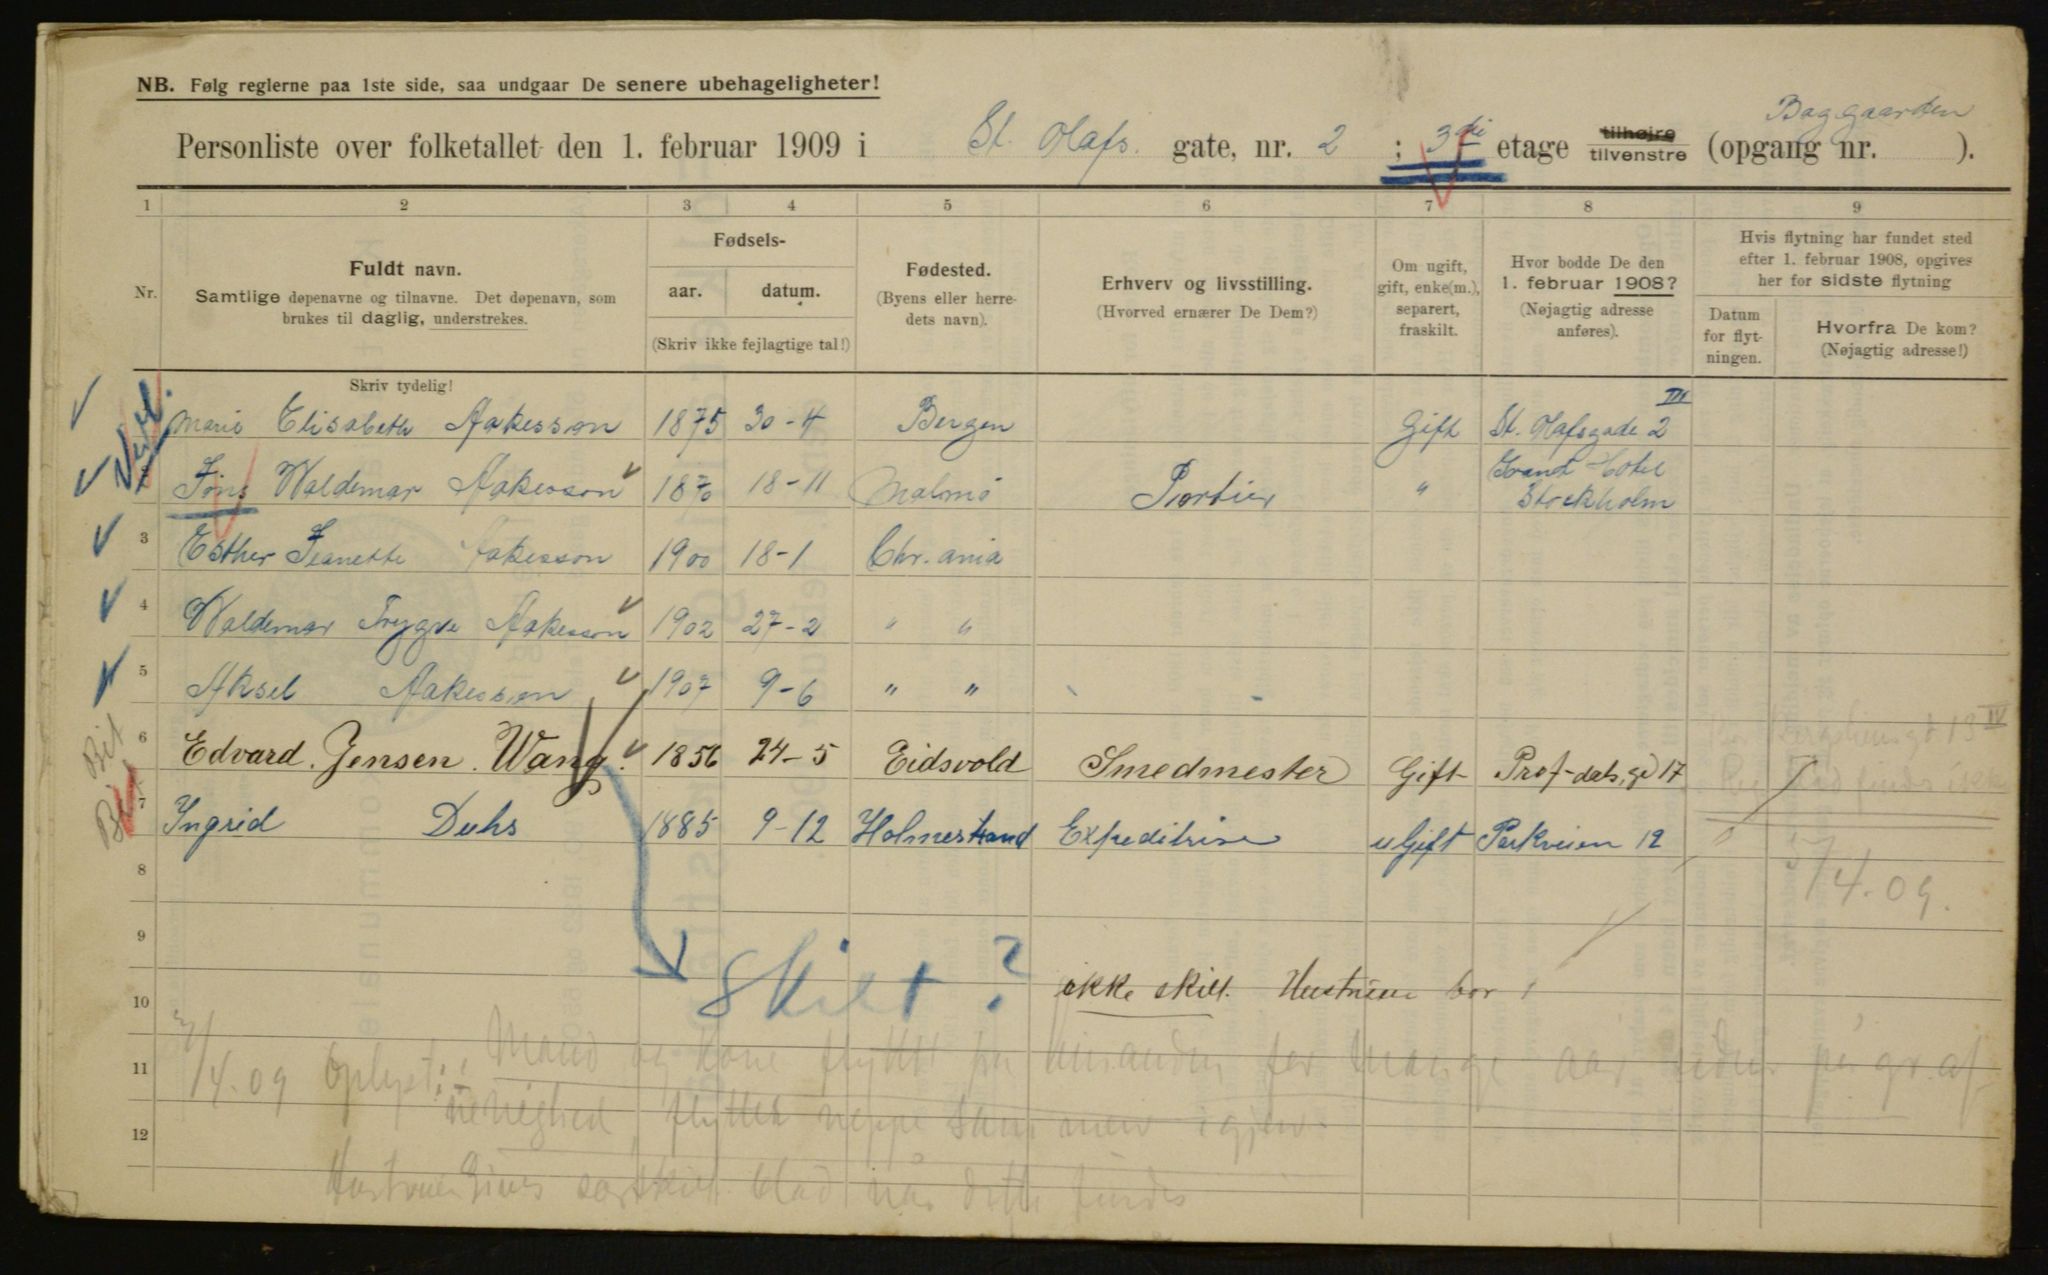 NB. Følg reglerne paa 1ste side, saa undgaar De senere ubehageligheter!
Baggaarden
Personliste over folketallet den 1. februar 1909 i St. Olafs. gate, nr. 2 ; 3di etage tilhøjre tilvenstre (opgang nr. ).
1 2 3 4 5 6 7 8 9
Nr.
Fuldt navn.
Samtlige døpenavne og tilnavne. Det døpenavn, som
brukes til daglig, understrekes.
Skriv tydelig!
Fødsels-
aar. datum.
(Skriv ikke fejlagtige tal!)
Fødested.
(Byens eller herre-
dets navn).
Erhverv og livsstilling.
(Hvorved ernærer De Dem?)
Om ugift,
gift, enke(m.),
separert,
fraskilt.
Hvor bodde De den
1. februar 1908?
(Nøjagtig adresse
anføres).
Hvis flytning har fundet sted
efter 1. februar 1908, opgives
her for sidste flytning
Datum
for flyt-
ningen.
Hvorfra De kom?
(Nøjagtig adresse!)
Marie Elisabeth Aakesson 1875 30-4 Bergen Gift St. Olafsgade 2 III
Jöns Waldemar Aakesson 1870 18-11 Malmö Portier " Grand Hotel
Stockholm
3 Esther Jeanette Aakesson 1900 18-1 Chr.ania
4 Waldemar Trygve Aakesson 1902 27-2 " "
5 Aksel Aakesson 1907 9-6 " "
6 Edvard. Jensen. Wang. 1856 24-5 Eidsvold Smedmester Gift Prof-dals,gd 17
7 Ingrid Duhs 1885 9-12 Holmestrand Expeditrise uGift Parkveien 12
8
/4.09.
9
Skilt?
10 ikke skilt. Hustruen bor i
11 /4.09 Oplyst: Mand og kone flyttet fra hinanden for mange aar siden på gr. af
uenighed, flytter neppe sammen igjen.
12
Hustruen gives særskilt blad når dette findes